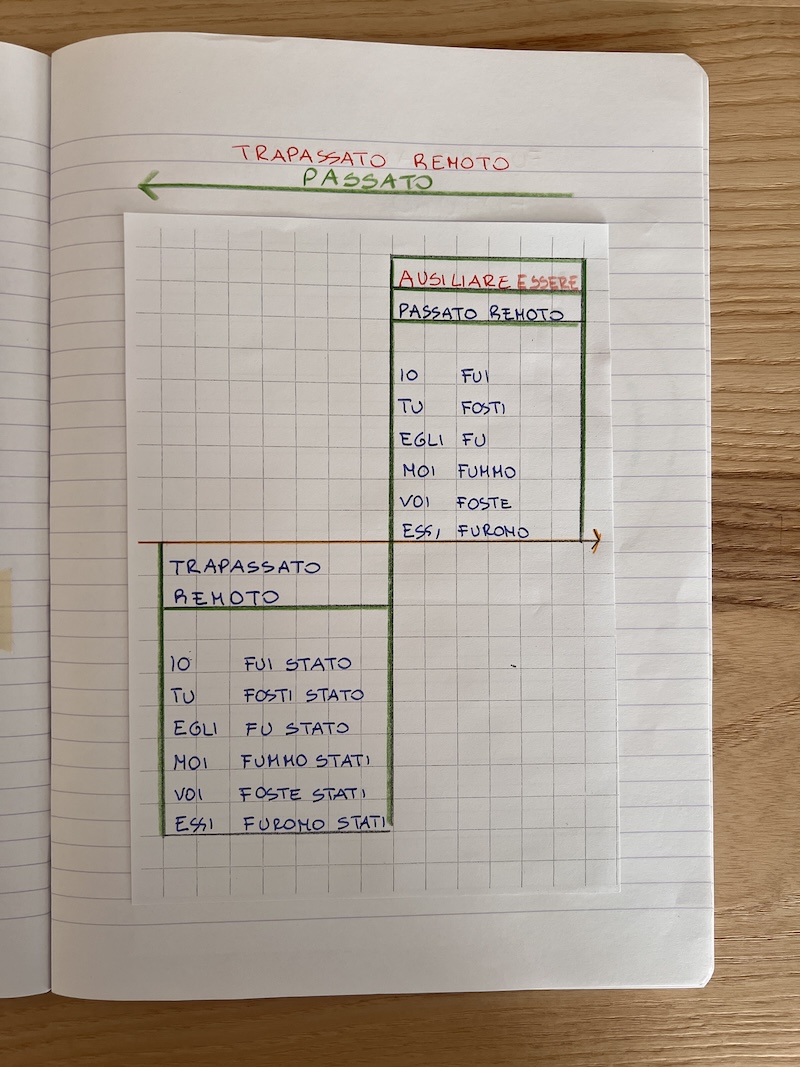 TRAPASSATO REMOTO
PASSATO
AUSILIARE ESSERE
PASSATO REMOTO
IO FUI
TU FOSTI
EGLI FU
NOI FUMMO
VOI FOSTE
ESSI FURONO
TRAPASSATO
REMOTO
IO FUI STATO
TU FOSTI STATO
EGLI FU STATO
NOI FUMMO STATI
VOI FOSTE STATI
ESSI FURONO STATI